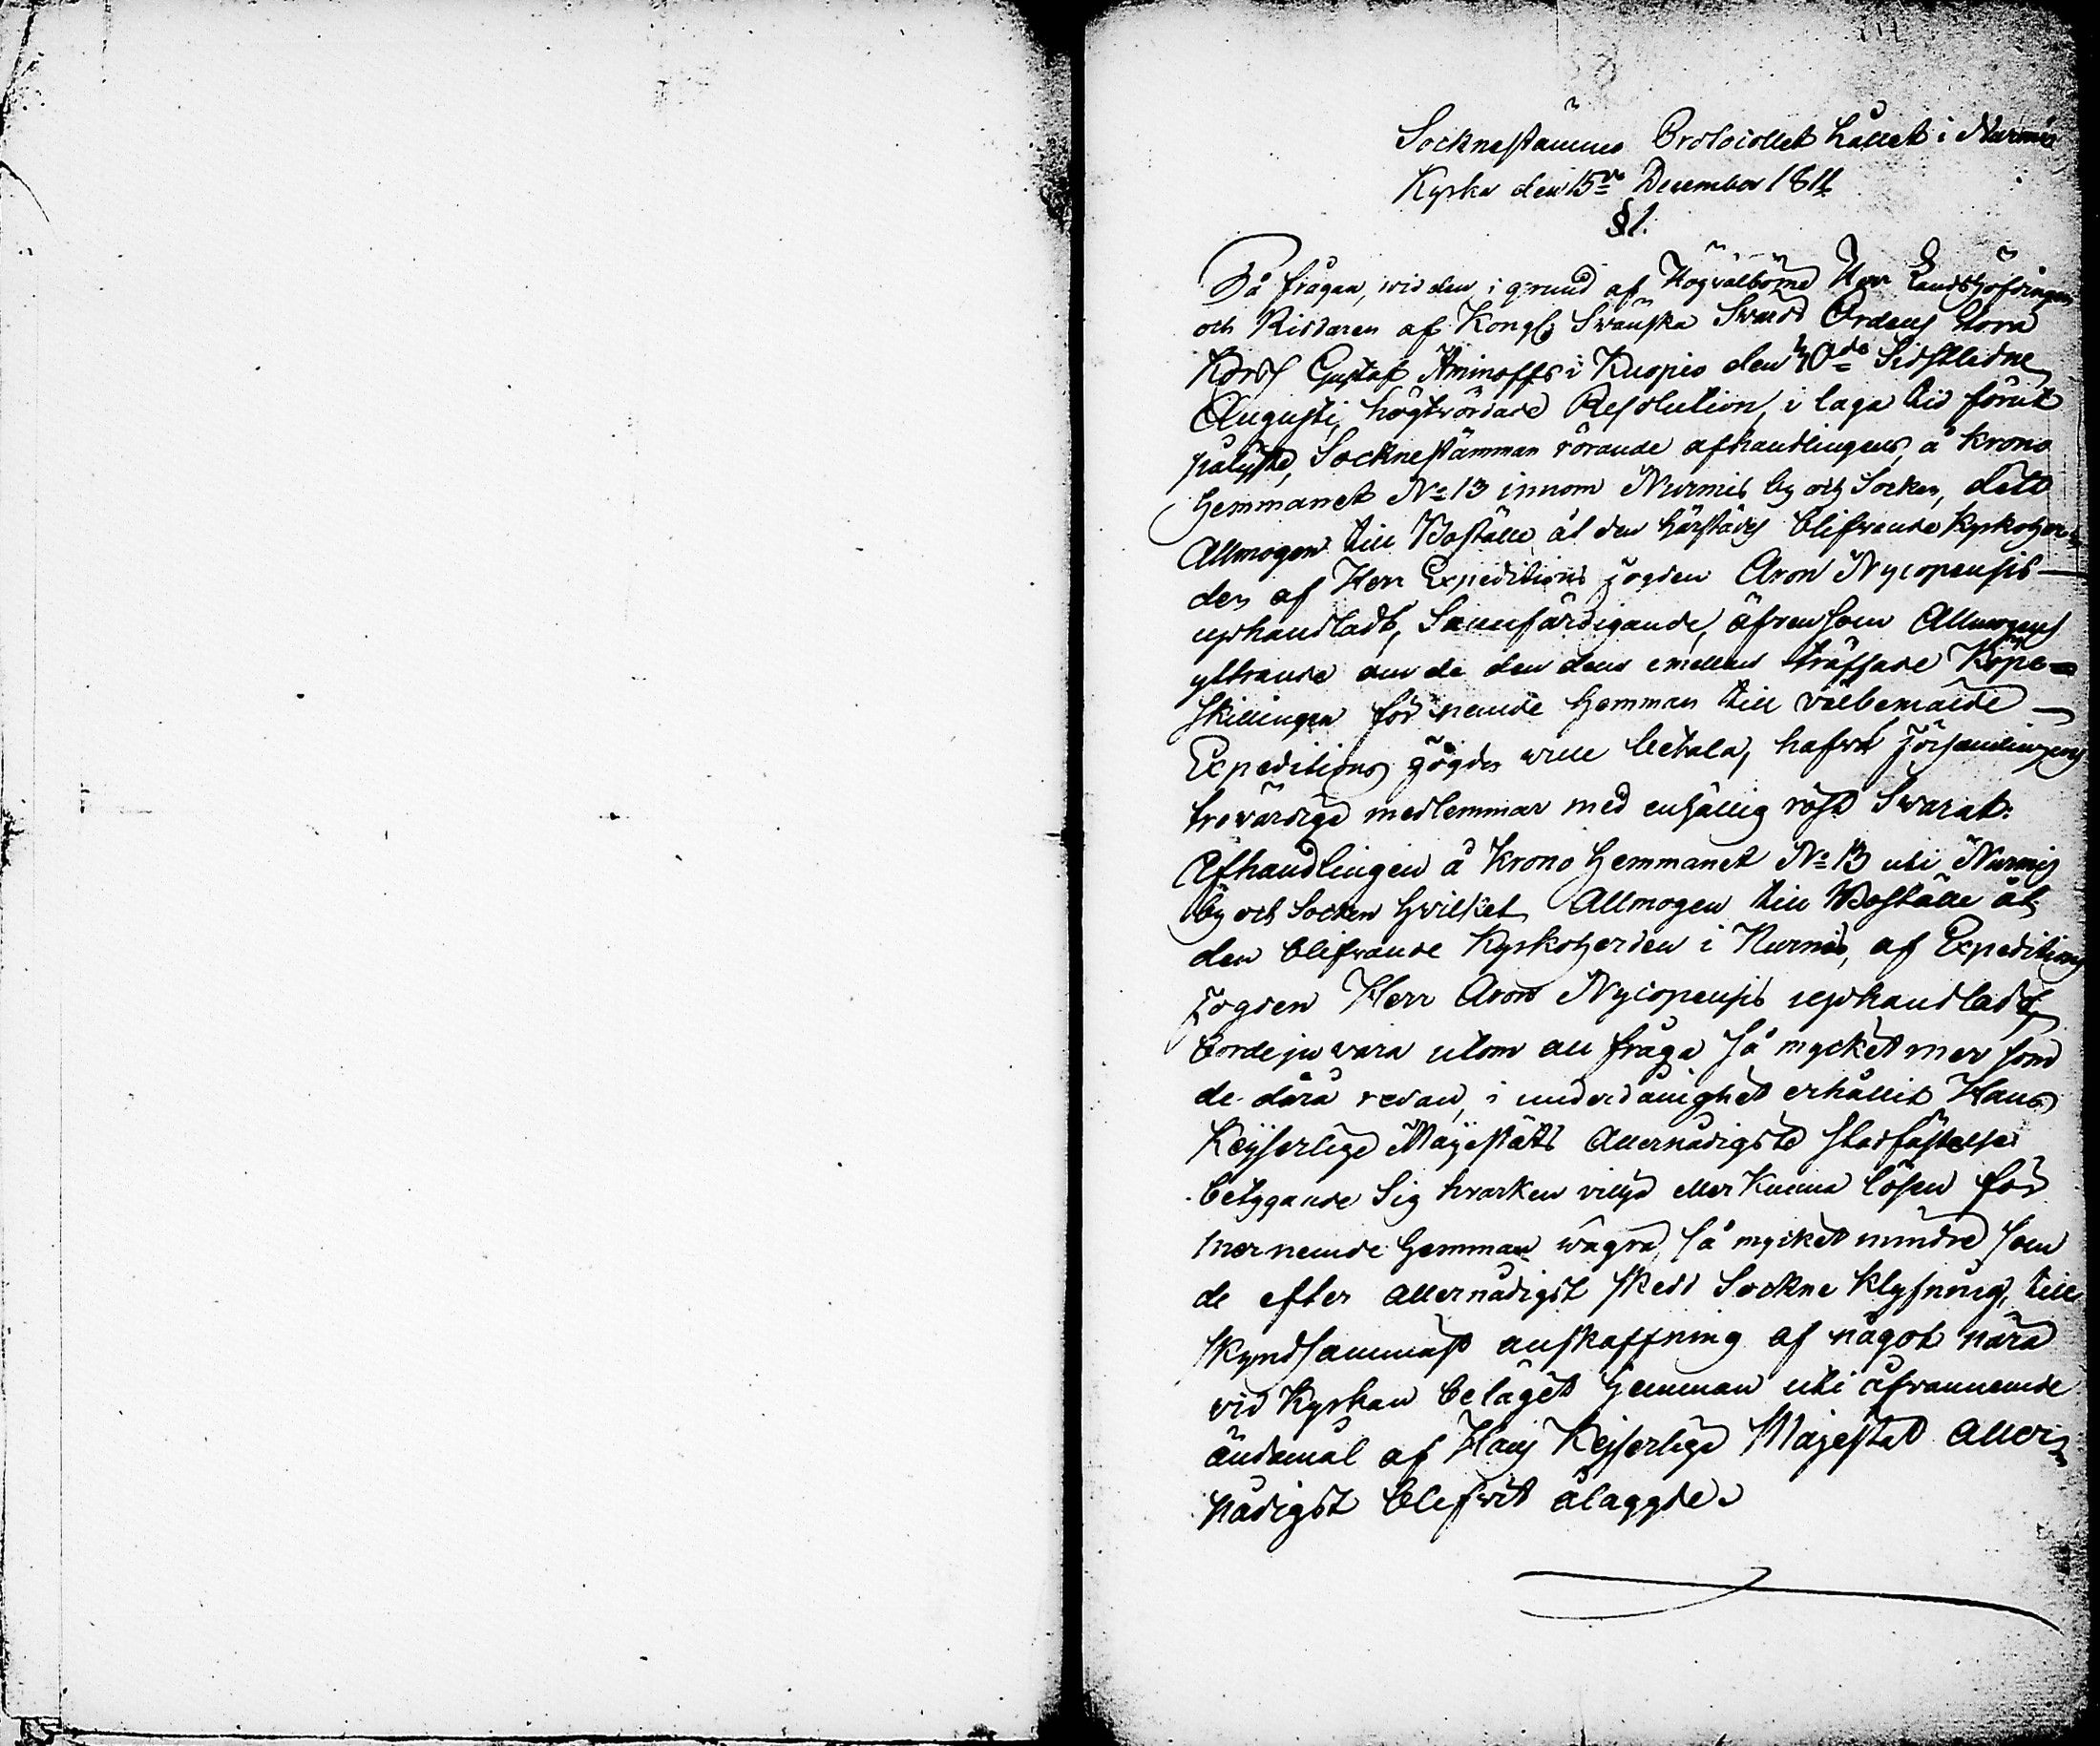 Socknestämmo Protocollet hållet i Nurmis
Kyrka den 15de December 1811
§1.
På frågan, wid den i grund af Högvälborne Herr Landshöfdingen
och Riddaren af Kongl. Swänska Swärds Ordens Stora
Kors Gustaf Aminoffs i Kuopio den 30de Sidstledne
Augusti, högtvördade Resolution, i laga tid förut
pålyste, Socknestämman rörande afhandlingens, å krono
Hemmanet No 13 innom Nurmis by och Socken, detta
Allmogen till Boställe åt den härstädes blifvande Kyrkoher-
den af Herr Expeditions fogden Aron Nycopensis
uphandladt, Sannfärdigande, äfvensom Allmogens
yttrande om de den dem emellan träffade Köpe-
skillingen för nemde Hemman till välbemälde
Expeditions fogde wille betala, hafva församlingens
trovärdige medlemmar med enhällig röst Swarat:
Afhandlingen å krono Hemmanet No 13 uti Nurmis
by och Socken hvilket Allmogen till Boställe åt
den blifvande Kyrkoherden i Nurmis, af Expeditions
fogden Herr Aron Nycopensis uphandladt,
borde ju vara utom all fråga så mycket mer som
de dåra redan, i underdånighet erhållit Hans
Keyserlige Majestäts Allernådigste stadfästelse
betygande Sig hvarken vilja eller Kunna lösen för
mernemde Hemman wägra så mycket mindre som
de efter allernådigst skedd Sockne klyfning, till
skyndsammast anskaffning af något nära
vid Kyrkan belägit Hemman uti äfvannemde
ändamål af Hans Kejserlige Majestät aller-
nådigst blefvit ålaggde.